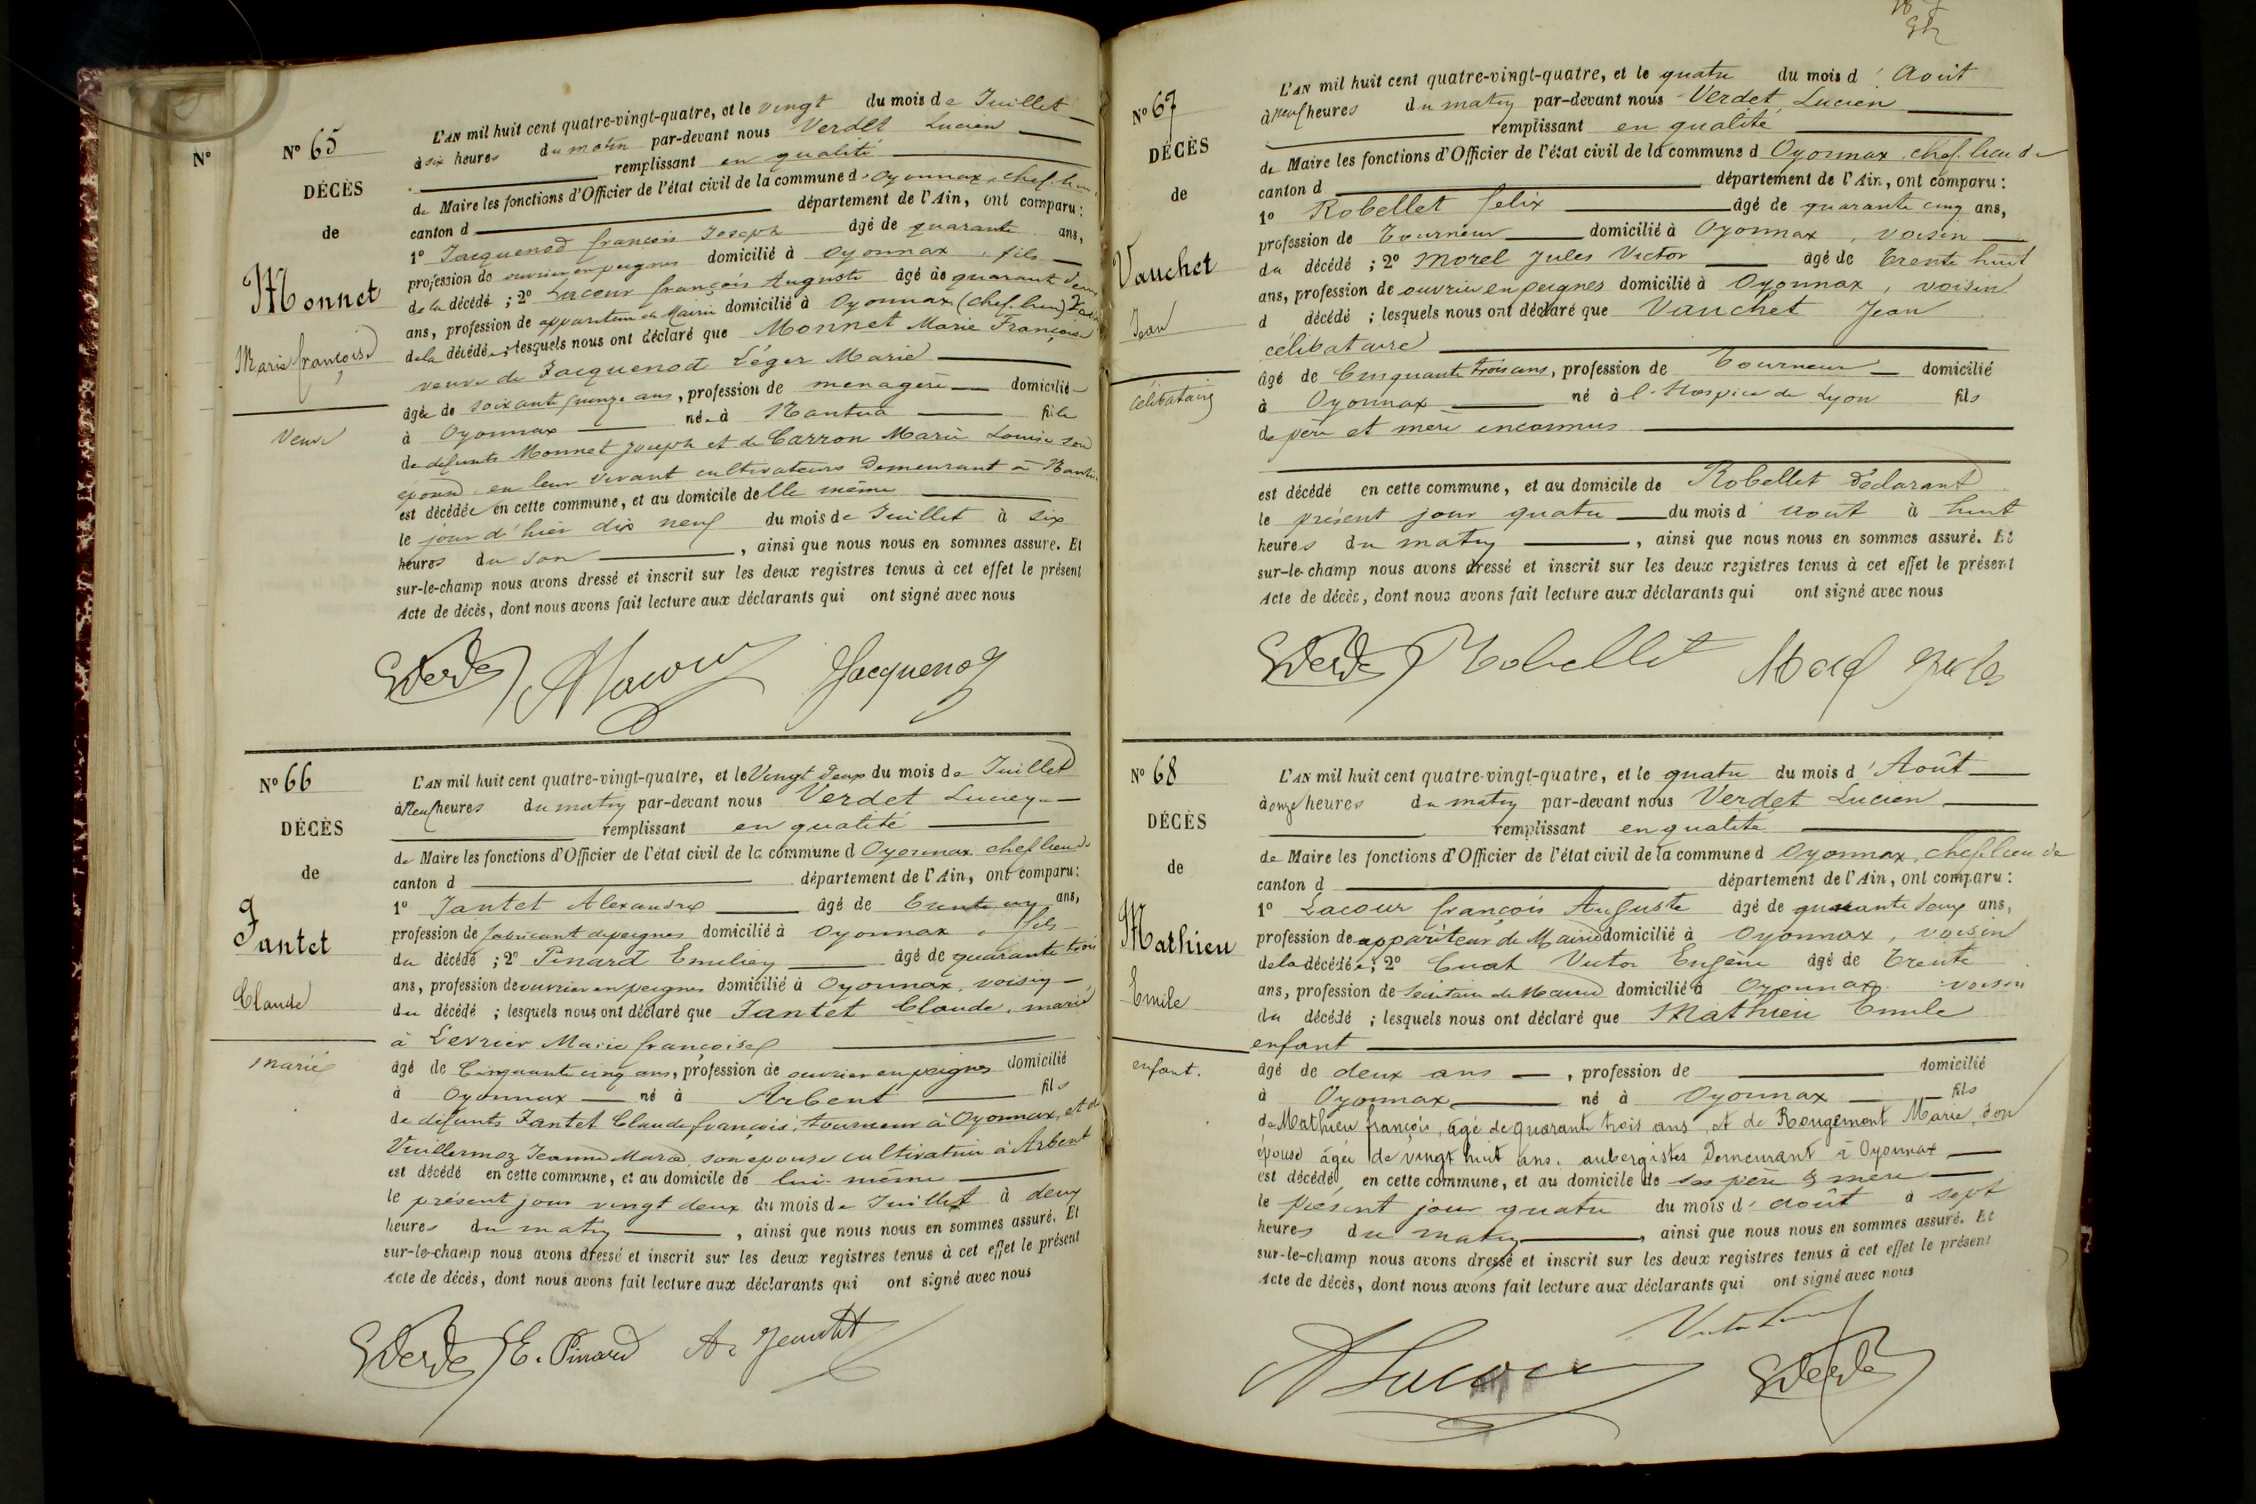 N°
N° 65
DÉCÈS
de
Monnet
Marie françoise
Veuve
L'AN mil huit cent quatre-vingt-quatre, et le vingt du mois de Juillet
à six heures du matin par-devant nous Verdet Lucien
remplissant en qualité
de Maire les fonctions d'Officier de l'état civil de la commune d'Oyonnax, chef-lieu
canton d département de l'Ain, ont comparu:
1° Jacquenod françois Joseph âgé de quarante ans,
profession de ouvrier en peignes domicilié à Oyonnax, fils
de la décédé; 2° Lacour françois Auguste âgé de quarant deux
ans, profession de appariteur de Mairie domicilié à Oyonnax (chef-lieu)
de la décédée; lesquels nous ont déclaré que Monnet Marie Françoise
veuve de Jacquenod Léger Marie
âgée de soixante quinze ans, profession de ménagère domicilié
à Oyonnax née à Nantua fille
de défunts Monnet Joseph et de Carron Marie Louise son
épouse en leur vivant cultivateurs demeurant à Nantua
est décédée en cette commune, et au domicile de lle même
le jour d'hier dix neuf du mois de Juillet à six
heures du soir, ainsi que nous nous en sommes assuré. Et
sur-le-champ nous avons dressé et inscrit sur les deux registres tenus à cet effet le présent
Acte de décès, dont nous avons fait lecture aux déclarants qui ont signé avec nous
Verdet ALacour Jacquenod
N° 66
DÉCÈS
de
Jantet
Claude
marié
L'AN mil huit cent quatre-vingt-quatre, et le Vingt deux du mois de Juillet
à Neuf heures du matin par-devant nous Verdet Lucien
remplissant en qualité
de Maire les fonctions d'Officier de l'état civil de la commune d Oyonnax chef lieu de
canton d département de l'Ain, ont comparu:
1° Jantet Alexandre âgé de Trente un ans,
profession de fabricant de peignes domicilié à Oyonnax, fils
du décédé; 2° Pinard Emilien âgé de quarante trois
ans, profession de ouvrier en peignes domicilié à Oyonnax, voisin
du décédé; lesquels nous ont déclaré que Jantet Claude, marié
à Levrier Marie françoise
âgé de Cinquante cinq ans, profession de ouvrier en peignes domicilié
à Oyonnax né à Arbent fils
de défunts Jantet Claude françois, tourneur à Oyonnax, et de
Vuillermoz Jeanne Marie son épouse cultivatrice à Arbent
est décédé en cette commune, et au domicile de lui-même
le présent jour vingt deux du mois de Juillet à deux
heures du matin, ainsi que nous nous en sommes assuré. Et
sur-le-champ nous avons dressé et inscrit sur les deux registres tenus à cet effet le présent
Acte de décès, dont nous avons fait lecture aux déclarants qui ont signé avec nous
Verdet E. Pinard
N° 67
DÉCÈS
de
Vauchet
Jean
célibataire
L'AN mil huit cent quatre-vingt-quatre, et le quatre du mois d'Août
à neuf heures du matin par-devant nous Verdet Lucien
remplissant en qualité
de Maire les fonctions d'Officier de l'état civil de la commune d Oyonnax, chef-lieu de
canton d département de l'Ain, ont comparu:
1° Robellet felix âgé de quarante cinq ans,
profession de Tourneur domicilié à Oyonnax, voisin
du décédé; 2° Morel Jules Victor âgé de Trente huit
ans, profession de ouvrier en peignes domicilié à Oyonnax, voisin
d décédé; lesquels nous ont déclaré que Vauchet Jean
célibataire
âgé de Cinquante trois ans, profession de Tourneur domicilié
à Oyonnax né à l'Hospice de Lyon fils
de père et mère inconnus
est décédé en cette commune, et au domicile de Robellet déclarant
le présent jour quatre du mois d'août à huit
heures du matin, ainsi que nous nous en sommes assuré. Et
sur-le-champ nous avons dressé et inscrit sur les deux registres tenus à cet effet le présent
Acte de décès, dont nous avons fait lecture aux déclarants qui ont signé avec nous
Verdet Robellet Morel Jules
N° 68
DÉCÈS
de
Mathieu
Emile
enfant.
L'AN mil huit cent quatre-vingt-quatre, et le quatre du mois d'Août
à onze heures du matin par-devant nous Verdet Lucien
remplissant en qualité
de Maire les fonctions d'Officier de l'état civil de la commune d Oyonnax, chef-lieu de
canton d département de l'Ain, ont comparu:
1° Lacour françois Auguste âgé de quarante deux ans,
profession de appariteur de Mairie domicilié à Oyonnax, voisin
de la décédée; 2° Cuat Victor Eugène âgé de Trente
ans, profession de Secrétaire de Mairie domicilié à Oyonnax voisin
du décédé; lesquels nous ont déclaré que Mathieu Emile
enfant
âgé de deux ans, profession de domicilié
à Oyonnax né à Oyonnax fils
de Mathieu françois, âgé de quarante trois ans, et de Rougemont Marie, son
épouse âgée de vingt huit ans, aubergistes Demeurant à Oyonnax
est décédé en cette commune, et au domicile de ses père & mère
le présent jour quatre du mois d'août à sept
heures du matin, ainsi que nous nous en sommes assuré. Et
sur-le-champ nous avons dressé et inscrit sur les deux registres tenus à cet effet le présent
Acte de décès, dont nous avons fait lecture aux déclarants qui ont signé avec nous
ALacour Verdet